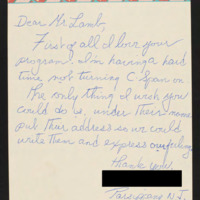 Dear Mr Lamb,
First of all I love your
program. I'm having a hard
time not turning C-Span on
The only thing I wish you
could do is, under their names
put their address so we could
write them and express our feelings.
thank you.
Parsippany N.J.